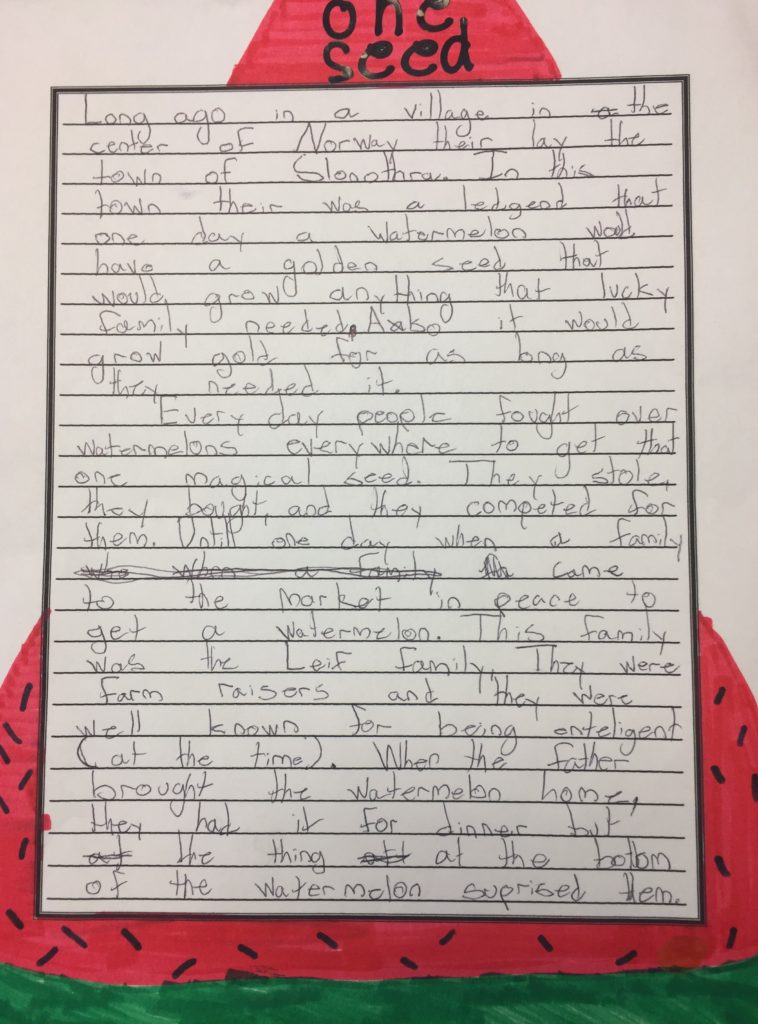 one
seed
Long ago in a village in a the
center of Norway their lay the
town of Slonothra. In this
town their was a ledgend that
one day a watermelon woult
have a golden seed that
would grow anything that lucky
family needed. Aalso it would
grow gold for as long as
they needed it.
Every day people fought over
watermelons everywhere to get that
one magical seed. They stole,
they bought, and they competed for
them. Untill one day when a family
who when a family came
to the market in peace to
get a watermelon. This family
was the Leif family. They were
farm raisers and they were
well known for being enteligent
(at the time). When the father
brought the watermelon home,
they had it for dinner but
at the thing at the bottom
of the watermelon suprised them.